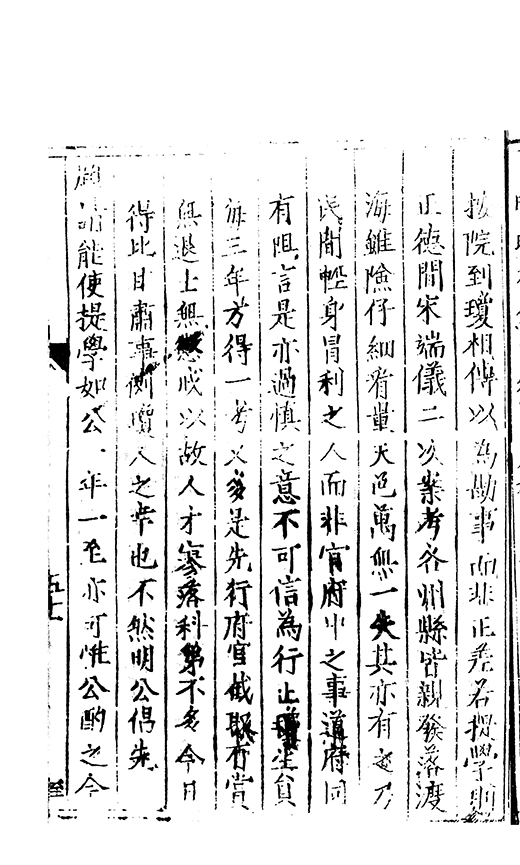 按院到瓊相傳以為勘事而非正差若提學則
正德間宋端儀二次案考各州縣皆親發落渡
海雖險仔細看量天色萬無一失其亦有之乃
民間輕身冒利之人而非官府中之事道府同
有阻言是亦過慎之意不可信為行止瓊生員
每三年方得一考又多是先行府官截取有賞
無退士無懲戒以故人才寥落科第不多今日
得比日肅事側瓊人之幸也不然明公倡先
請能使提學如公一年一至亦可惟公酌之今
五十